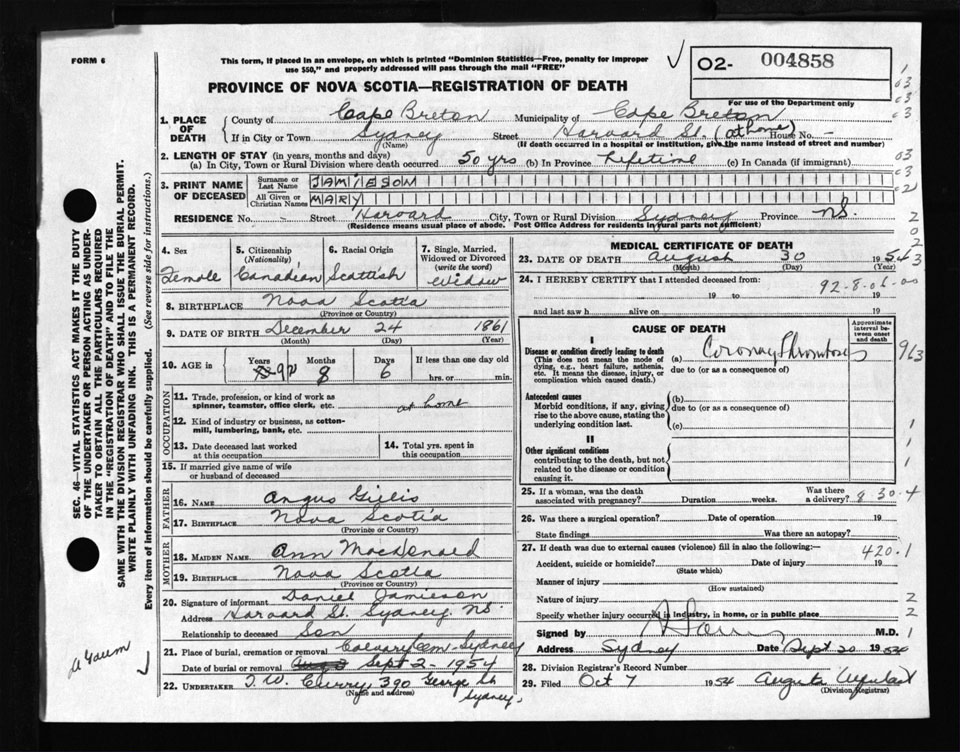 FORM 6
This form, if placed in an envelope, on which is printed "Dominion Statistics—Free, penalty for improper
use $50," and properly addressed will pass through the mail "FREE"
02- 004858
PROVINCE OF NOVA SCOTIA—REGISTRATION OF DEATH
For use of the Department only
1. PLACE OF DEATH
County of Cape Breton Municipality of Cape Breton
If in City or Town Sydney Street Harvard St. (at home) House No. -
(Name) (If death occurred in a hospital or institution, give the name instead of street and number)
2. LENGTH OF STAY (in years, months and days)
(a) In City, Town or Rural Division where death occurred 50 yrs (b) in Province Lifetime (c) In Canada (if immigrant)
3. PRINT NAME OF DECEASED
Surname or Last Name JAMIESON
All Given or Christian Names MARY
RESIDENCE No. - Street Harvard City, Town or Rural Division Sydney Province N.S.
(Residence means usual place of abode. Post Office Address for residents in rural parts not sufficient)
4. Sex Female
5. Citizenship (Nationality) Canadian
6. Racial Origin Scottish
7. Single, Married, Widowed or Divorced (write the word) Widow
8. BIRTHPLACE Nova Scotia
(Province or Country)
9. DATE OF BIRTH December 24 1861
(Month) (Day) (Year)
10. AGE in Years 92 Months 8 Days 6 If less than one day old
hrs. or min.
OCCUPATION
11. Trade, profession, or kind of work as
spinner, teamster, office clerk, etc. at home
12. Kind of industry or business, as cotton-
mill, lumbering, bank, etc.
13. Date deceased last worked
at this occupation
14. Total yrs. spent in
this occupation
15. If married give name of wife
or husband of deceased
FATHER
16. NAME Angus Gillis
17. BIRTHPLACE Nova Scotia
(Province or Country)
MOTHER
18. MAIDEN NAME Ann MacDonald
19. BIRTHPLACE Nova Scotia
(Province or Country)
20. Signature of informant Daniel Jamieson
Address Harvard St. Sydney N.S.
Relationship to deceased Son
21. Place of burial, cremation or removal Calvary Cem - Sydney
Date of burial or removal Sept 2 - 1954
22. UNDERTAKER T. W. Curry 390 George St
(Name and address) Sydney.
MEDICAL CERTIFICATE OF DEATH
23. DATE OF DEATH August 30 1954
(Month) (Day) (Year)
24. I HEREBY CERTIFY that I attended deceased from:
92-8-06-00
19 to 19
and last saw h alive on 19
CAUSE OF DEATH
Approximate interval between onset and death
I
Disease or condition directly leading to death (a) Coronary Thrombosis
(This does not mean the mode of dying, e.g., heart failure, asthenia, etc. It means the disease, injury, or complication which caused death.)
due to (or as a consequence of)
Antecedent causes (b)
Morbid conditions, if any, giving rise to the above cause, stating the underlying condition last.
due to (or as a consequence of)
(c)
II
Other significant conditions
contributing to the death, but not related to the disease or condition causing it.
25. If a woman, was the death
associated with pregnancy? Duration weeks. Was there a delivery? 8 30.4
26. Was there a surgical operation? Date of operation 19
State findings Was there an autopsy?
27. If death was due to external causes (violence) fill in also the following:—
420.1
Accident, suicide or homicide? Date of injury 19
(State which)
Manner of injury
(How sustained)
Nature of injury
Specify whether injury occurred in industry, in home, or in public place
Signed by M.D.
Address Sydney Date Sept 20 1954
28. Division Registrar's Record Number
29. Filed Oct 7 1954
(Division Registrar)
SEC. 46—VITAL STATISTICS ACT MAKES IT THE DUTY
OF THE UNDERTAKER OR PERSON ACTING AS UNDER-
TAKER TO OBTAIN ALL THE PARTICULARS REQUIRED
IN THE "REGISTRATION OF DEATH" AND TO FILE THE
SAME WITH THE DIVISION REGISTRAR WHO SHALL ISSUE THE BURIAL PERMIT.
WRITE PLAINLY WITH UNFADING INK. THIS IS A PERMANENT RECORD.
Every item of information should be carefully supplied. (See reverse side for instructions.)